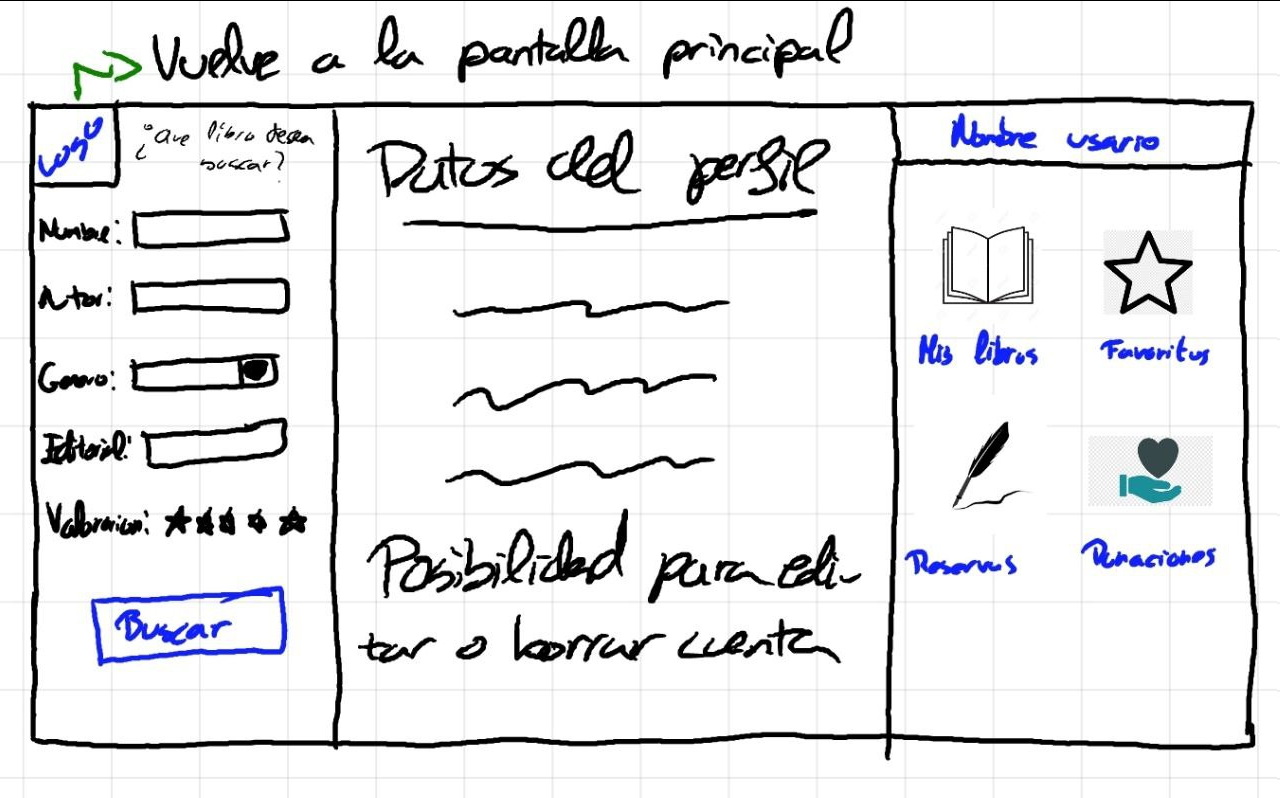 Vuelve a la pantalla principal
Logo
¿Que libro desea
buscar?
Nombre:
Autor:
Genero:
Editorial:
Valoracion:
Buscar
Datos del perfil
Posibilidad para edi-
tar o borrar cuenta
Nombre usario
Mis libros
Favoritos
Reservas
Donaciones